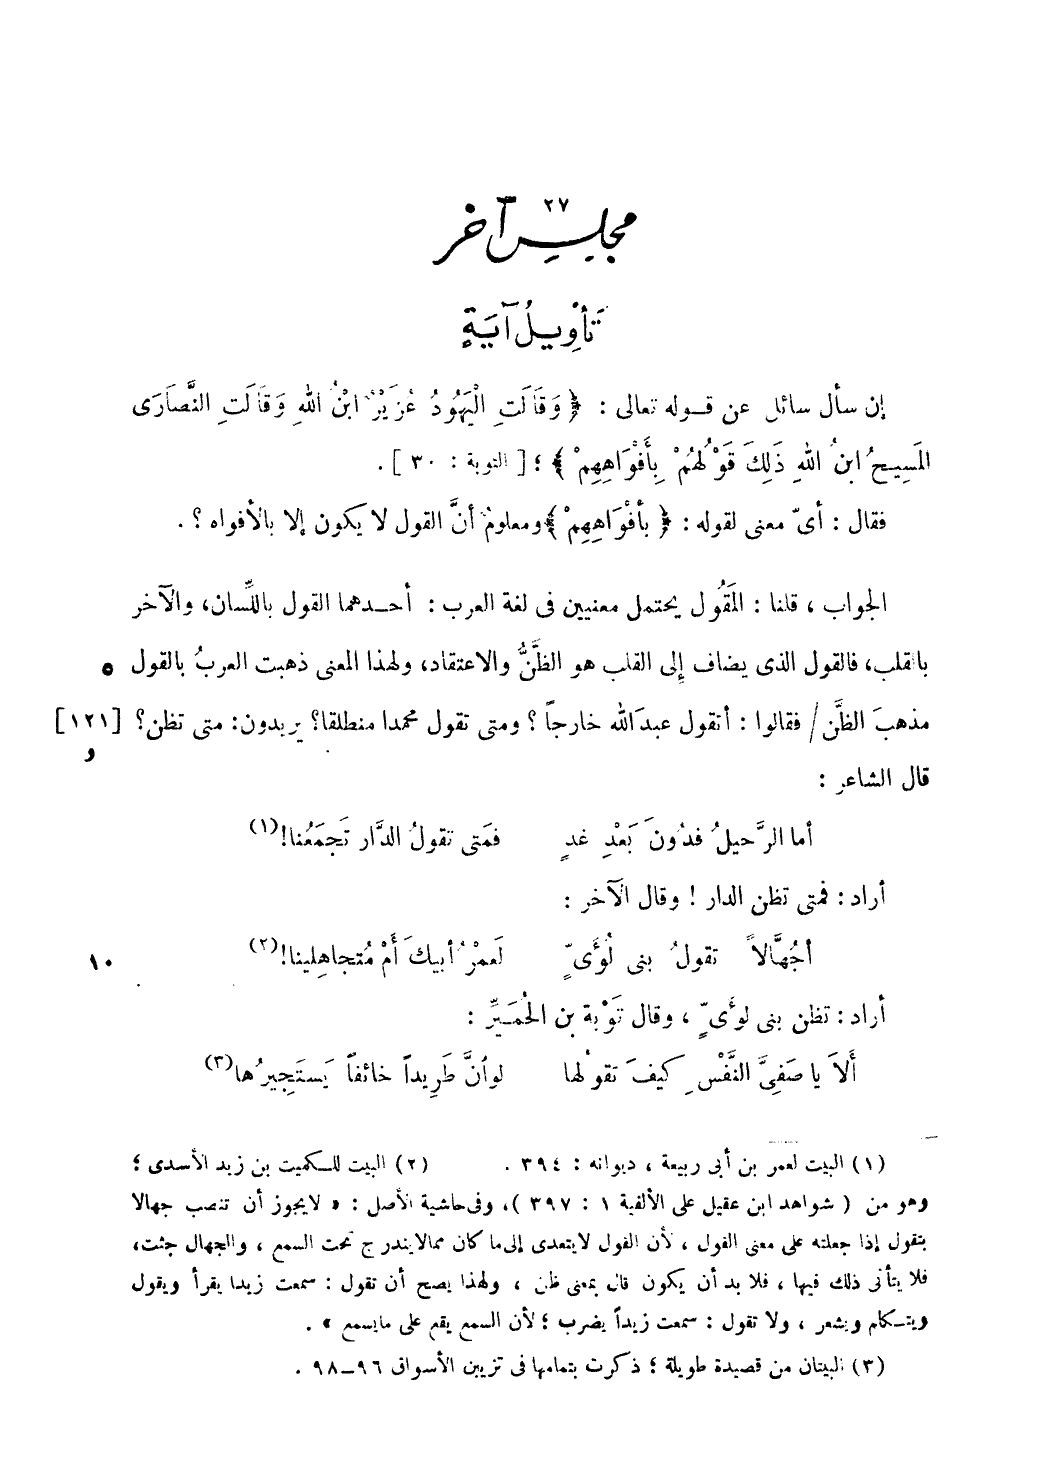 ٢٧
مجلس آخر
تَأْوِيلُ آيَةٍ
إن سأل سائل عن قوله تعالى : ﴿ وَقَالَتِ الْيَهُودُ عُزَيْرٌ ابْنُ اللهِ وَقَالَتِ النَّصَارَى
المَسِيحُ ابنُ اللهِ ذَلِكَ قَوْلُهُمْ بِأَفْوَاهِهِمْ ﴾ ؛ [ التوبة : ٣٠ ] .
فقال : أىّ معنى لقوله : ﴿ بأفْوَاهِهِمْ ﴾ ومعلومٌ أنَّ القول لا يكون إلا بالأفواه ؟ .
الجواب ، قلنا : المَقُول يحتمل معنيين فى لغة العرب : أحدهما القول باللِّسان، والآخر
بالقلب، فالقول الذى يضاف إلى القلب هو الظَّنُّ والاعتقاد، ولهذا المعنى ذهبت العربُ بالقول ٥
مذهبَ الظَّن / فقالوا : أتقول عبدَ الله خارجاً ؟ ومتى تقول محمدا منطلقا؟ يريدون: متى تظن؟ [١٢١]
و
قال الشاعر :
أما الرَّحيلُ فدُونَ بَعْدِ غدٍ فمَتى تقولُ الدَّار تَجمَعُنا!(١)
أراد : فمتى تظن الدار ! وقال الآخر :
أجُهَّالاً تقولُ بنى لُوَّىٍّ لَعمْرُ أبيكَ أَمْ مُتجاهِلينا!(٢) ١٠
أراد : تظن بنى لوَّىٍّ ، وقال تَوْبة بن الحُمَيِّر :
أَلاَ يا صَفِىَّ النَّفْسِ كيفَ تقولُها لو أنَّ طَرِيداً خائفاً يَستَجِيرُها(٣)
(١) البيت لعمر بن أبى ربيعة ، ديوانه : ٣٩٤ . (٢) البيت للكميت بن زيد الأسدى ؛
وهو من ( شواهد ابن عقيل على الألفية ١ : ٣٩٧ )، وفى حاشية الأصل : « لا يجوز أن تنصب جهالا
بتقول إذا جعلته على معنى القول ، لأن القول لا يتعدى إلى ما كان ممالايندرج تحت السمع ، والجهال جثت،
فلا يتأتى ذلك فيها ، فلا بد أن يكون قال بمعنى ظن ، ولهذا يصح أن تقول : سمعت زيدا يقرأ ويقول
ويتكلم ويشعر ، ولا تقول : سمعت زيداً يضرب ؛ لأن السمع يقع على مايسمع » .
(٣) البيتان من قصيدة طويلة ؛ ذكرت بتمامها فى تزيين الأسواق ٩٦ـ٩٨ .